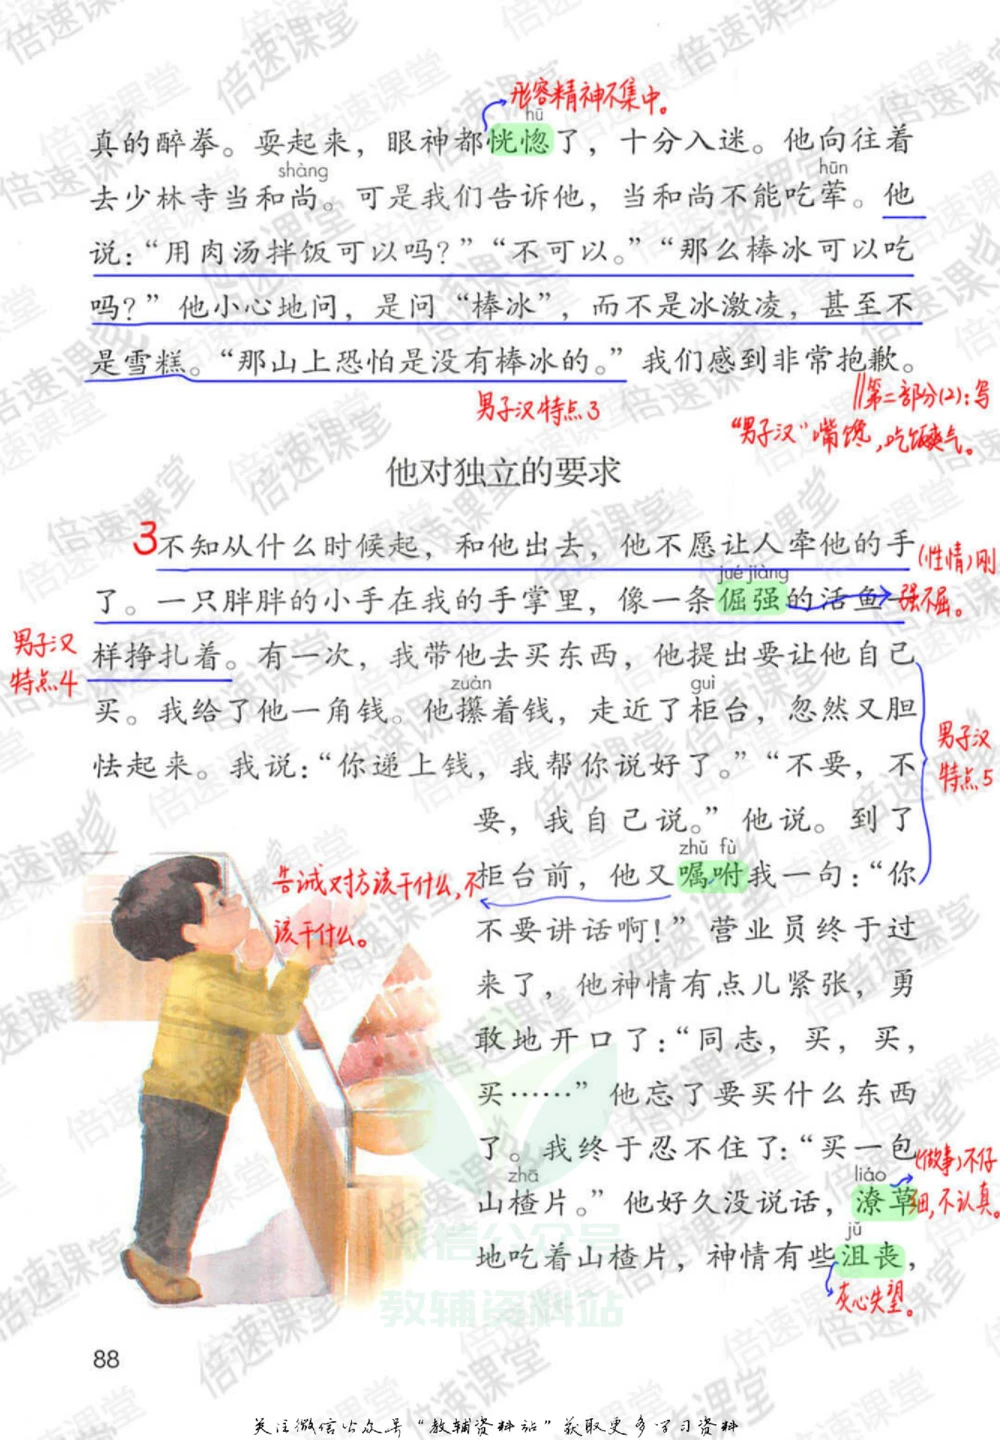 形容精神不集中。
hū
真的醉拳。耍起来，眼神都恍惚了，十分入迷。他向往着
shàng
hūn
去少林寺当和尚。可是我们告诉他，当和尚不能吃荤。他
说：“用肉汤拌饭可以吗？”“不可以。”“那么棒冰可以吃
吗？”他小心地问，是问“棒冰”，而不是冰激凌，甚至不
是雪糕。“那山上恐怕是没有棒冰的。”我们感到非常抱歉。
男子汉特点3
∥第二部分(2)：写
“男子汉”嘴馋，吃饭爽气。
他对独立的要求
3不知从什么时候起，和他出去，他不愿让人牵他的手
(性情)刚
强不屈。
jué jiàng
了。一只胖胖的小手在我的手掌里，像一条倔强的活鱼一
男子汉
特点4
样挣扎着。有一次，我带他去买东西，他提出要让他自己
zuàn
guì
买。我给了他一角钱。他攥着钱，走近了柜台，忽然又胆
男子汉
特点5
怯起来。我说：“你递上钱，我帮你说好了。”“不要，不
要，我自己说。”他说。到了
zhǔ fù
柜台前，他又嘱咐我一句：“你
告诫对方该干什么，不
该干什么。
不要讲话啊！”营业员终于过
来了，他神情有点儿紧张，勇
敢地开口了：“同志，买，买，
买……”他忘了要买什么东西
了。我终于忍不住了：“买一包
zhā
liáo
(做事)不仔
细，不认真。
山楂片。”他好久没说话，潦草
jǔ
地吃着山楂片，神情有些沮丧，
灰心失望。
微信公众号
教辅资料站
88
关注微信公众号“教辅资料站”获取更多学习资料
倍速课堂